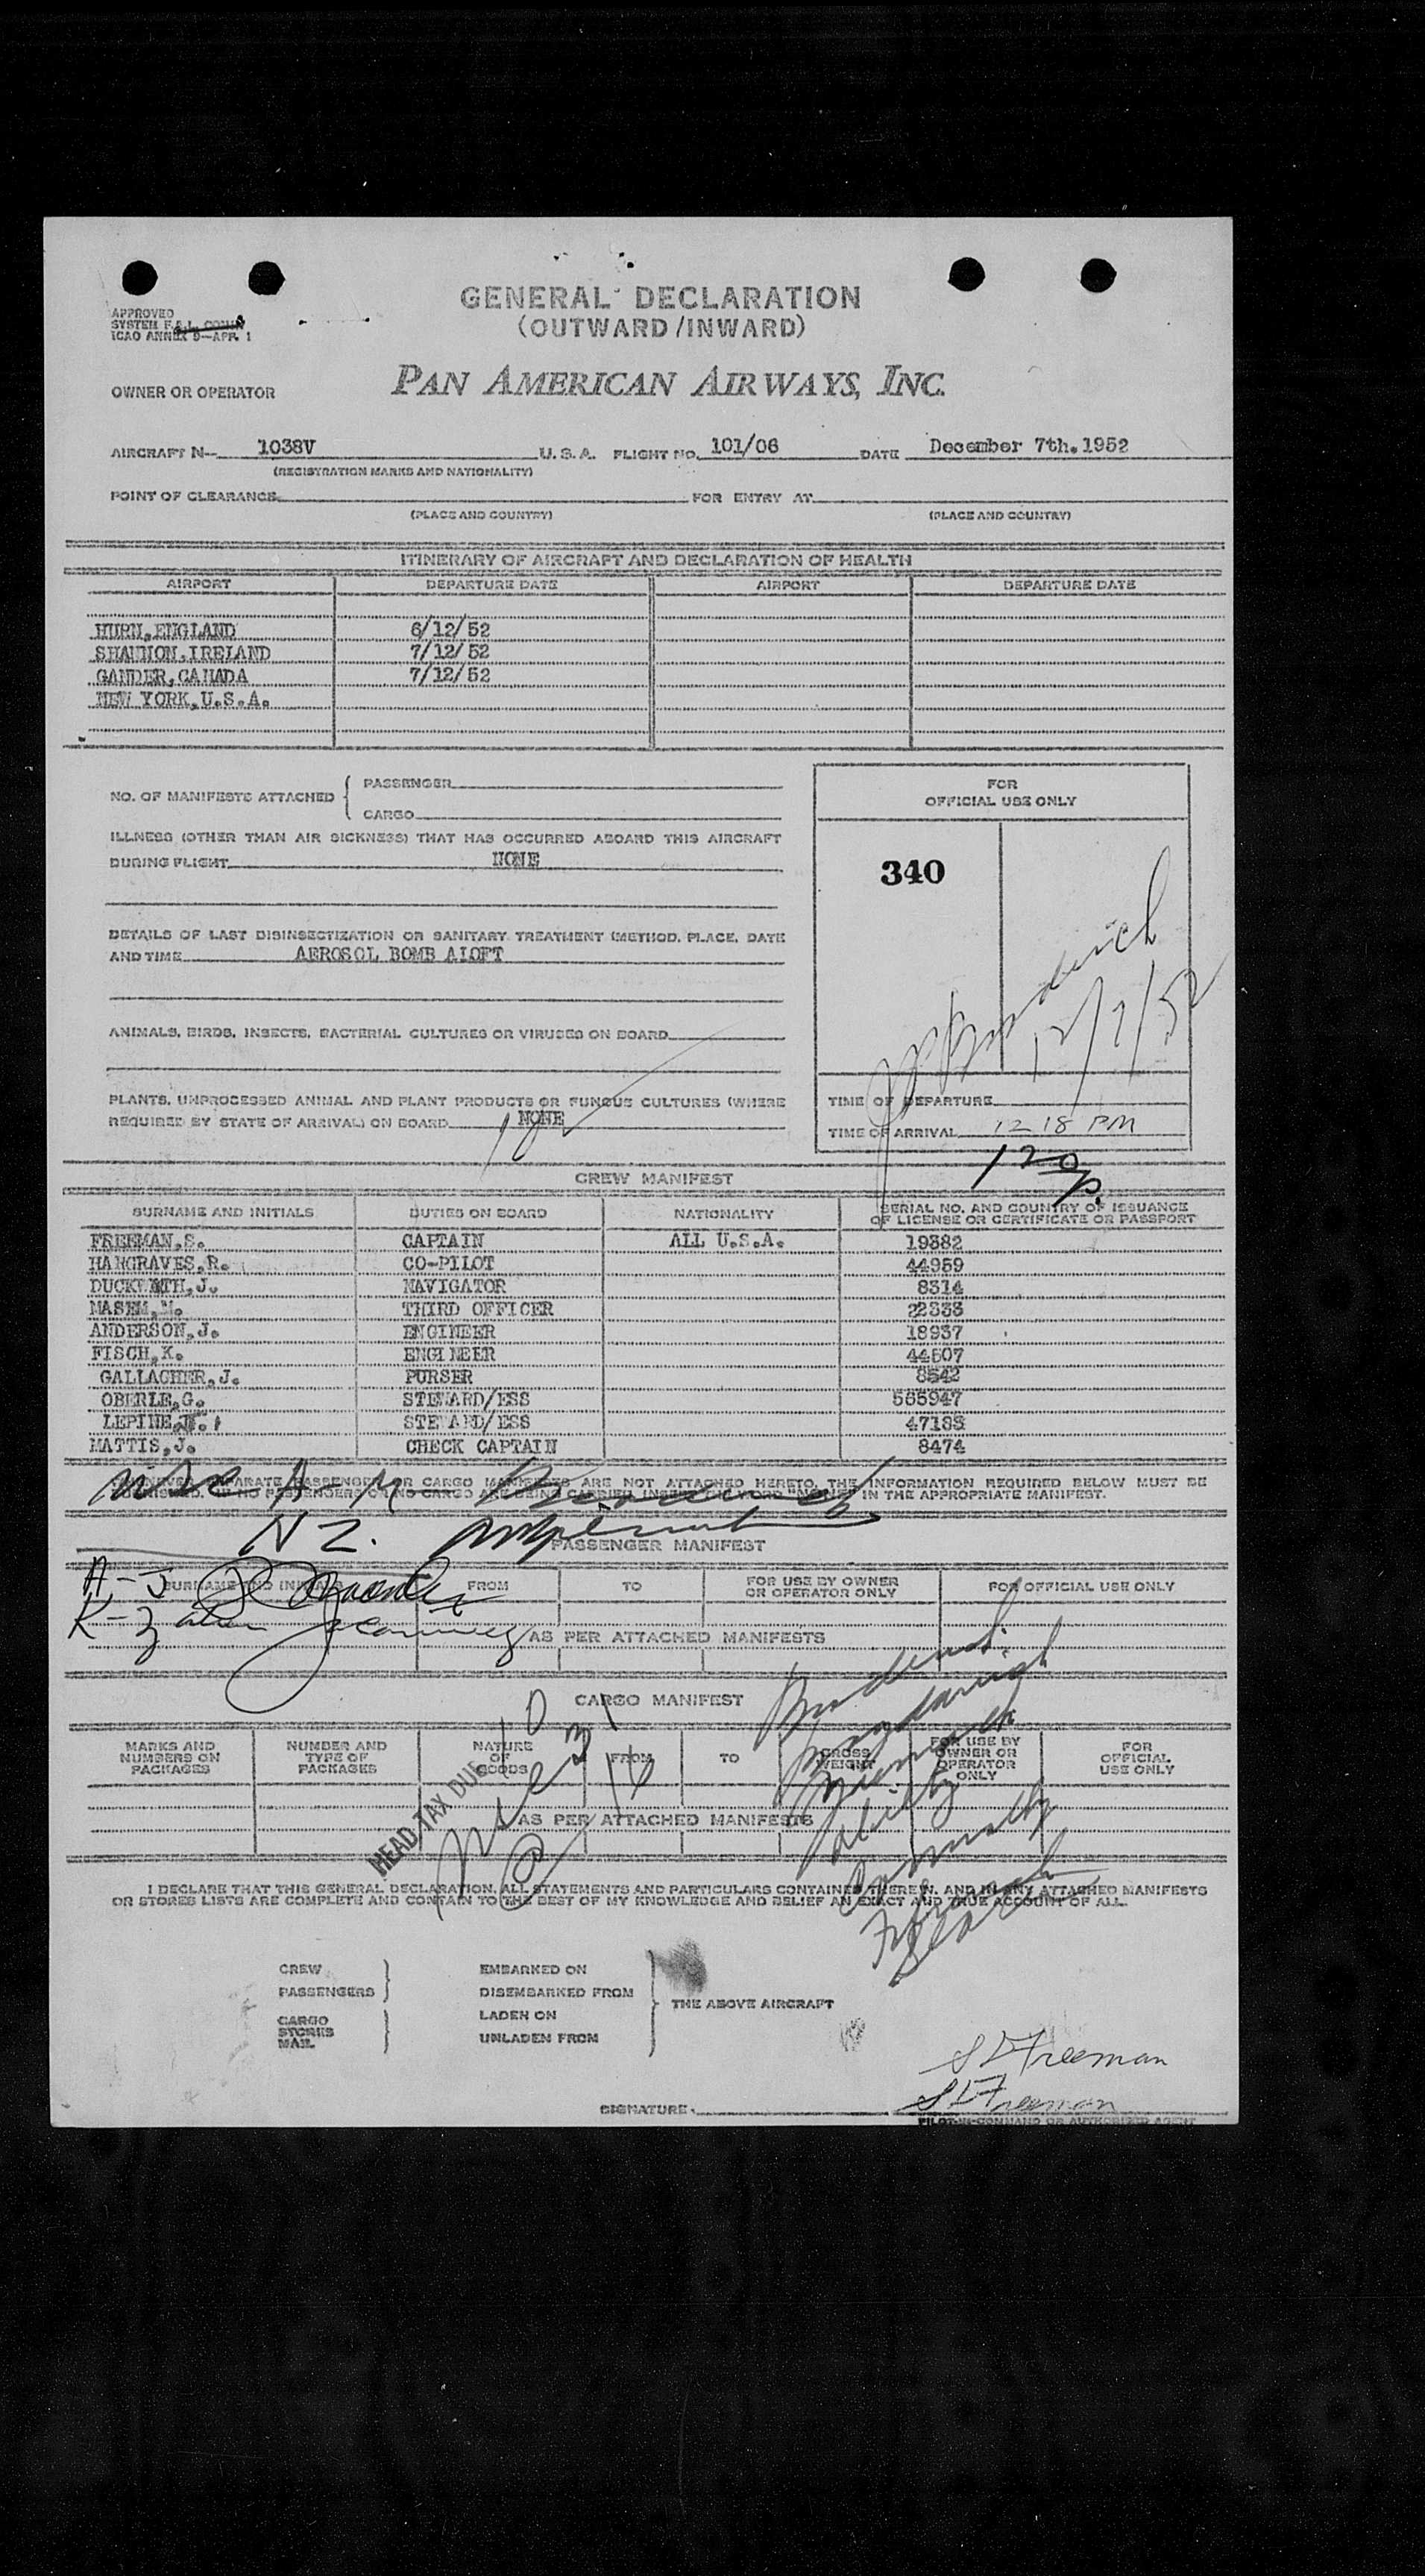 GENERAL DECLARATION
(OUTWARD/INWARD)
APPROVED
SYSTEM F.A.L. COMM
ICAO ANNEX 9—APP. 1
OWNER OR OPERATOR PAN AMERICAN AIRWAYS, INC.
AIRCRAFT N— 1038V U. S. A. FLIGHT NO. 101/06 DATE December 7th.1952
(REGISTRATION MARKS AND NATIONALITY)
POINT OF CLEARANCE FOR ENTRY AT
(PLACE AND COUNTRY) (PLACE AND COUNTRY)
ITINERARY OF AIRCRAFT AND DECLARATION OF HEALTH
AIRPORT DEPARTURE DATE AIRPORT DEPARTURE DATE
HURN,ENGLAND 6/12/52
SHANNON,IRELAND 7/12/52
GANDER,CANADA 7/12/52
NEW YORK,U.S.A.
NO. OF MANIFESTS ATTACHED { PASSENGER
CARGO
ILLNESS (OTHER THAN AIR SICKNESS) THAT HAS OCCURRED ABOARD THIS AIRCRAFT
DURING FLIGHT NONE
DETAILS OF LAST DISINSECTIZATION OR SANITARY TREATMENT (METHOD, PLACE, DATE
AND TIME AEROSOL BOMB ALOFT
ANIMALS, BIRDS, INSECTS, BACTERIAL CULTURES OR VIRUSES ON BOARD
PLANTS, UNPROCESSED ANIMAL AND PLANT PRODUCTS OR FUNGUS CULTURES (WHERE
REQUIRED BY STATE OF ARRIVAL) ON BOARD NONE
FOR
OFFICIAL USE ONLY
340
12/7/52
TIME OF DEPARTURE
TIME OF ARRIVAL 12 18 PM
CREW MANIFEST
SURNAME AND INITIALS DUTIES ON BOARD NATIONALITY SERIAL NO. AND COUNTRY OF ISSUANCE
OF LICENSE OR CERTIFICATE OR PASSPORT
FREEMAN,S. CAPTAIN ALL U.S.A. 19382
HARGRAVES,R. CO-PILOT 44959
DUCKWATH,J. NAVIGATOR 8314
MASEM,M. THIRD OFFICER 22333
ANDERSON,J. ENGINEER 18937
FISCH,K. ENGINEER 44507
GALLAGHER,J. PURSER 8542
OBERLE,G. STEWARD/ESS 565947
LEPINE, STEWARD/ESS 47188
MATTIS,J. CHECK CAPTAIN 8474
WHENEVER SEPARATE PASSENGER OR CARGO MANIFESTS ARE NOT ATTACHED HERETO, THE INFORMATION REQUIRED BELOW MUST BE
FURNISHED. IF NO PASSENGERS OR NO CARGO ARE BEING CARRIED INSERT THE WORD "NONE" IN THE APPROPRIATE MANIFEST.
A-M
NZ.
PASSENGER MANIFEST
A-J
K-Z
SURNAME AND INITIALS FROM TO FOR USE BY OWNER
OR OPERATOR ONLY FOR OFFICIAL USE ONLY
AS PER ATTACHED MANIFESTS
CARGO MANIFEST
MARKS AND
NUMBERS ON
PACKAGES
NUMBER AND
TYPE OF
PACKAGES
NATURE
OF
GOODS
FROM
TO
GROSS
WEIGHT
FOR USE BY
OWNER OR
OPERATOR
ONLY
FOR
OFFICIAL
USE ONLY
HEAD TAX DUE
AS PER ATTACHED MANIFESTS
I DECLARE THAT THIS GENERAL DECLARATION, ALL STATEMENTS AND PARTICULARS CONTAINED THEREIN, AND IN ANY ATTACHED MANIFESTS
OR STORES LISTS ARE COMPLETE AND CONTAIN TO THE BEST OF MY KNOWLEDGE AND BELIEF AN EXACT AND TRUE ACCOUNT OF ALL.
CREW
PASSENGERS
CARGO
STORES
MAIL
EMBARKED ON
DISEMBARKED FROM
LADEN ON
UNLADEN FROM
THE ABOVE AIRCRAFT
S D Freeman
S D Freeman
SIGNATURE
PILOT-IN-COMMAND OR AUTHORIZED AGENT